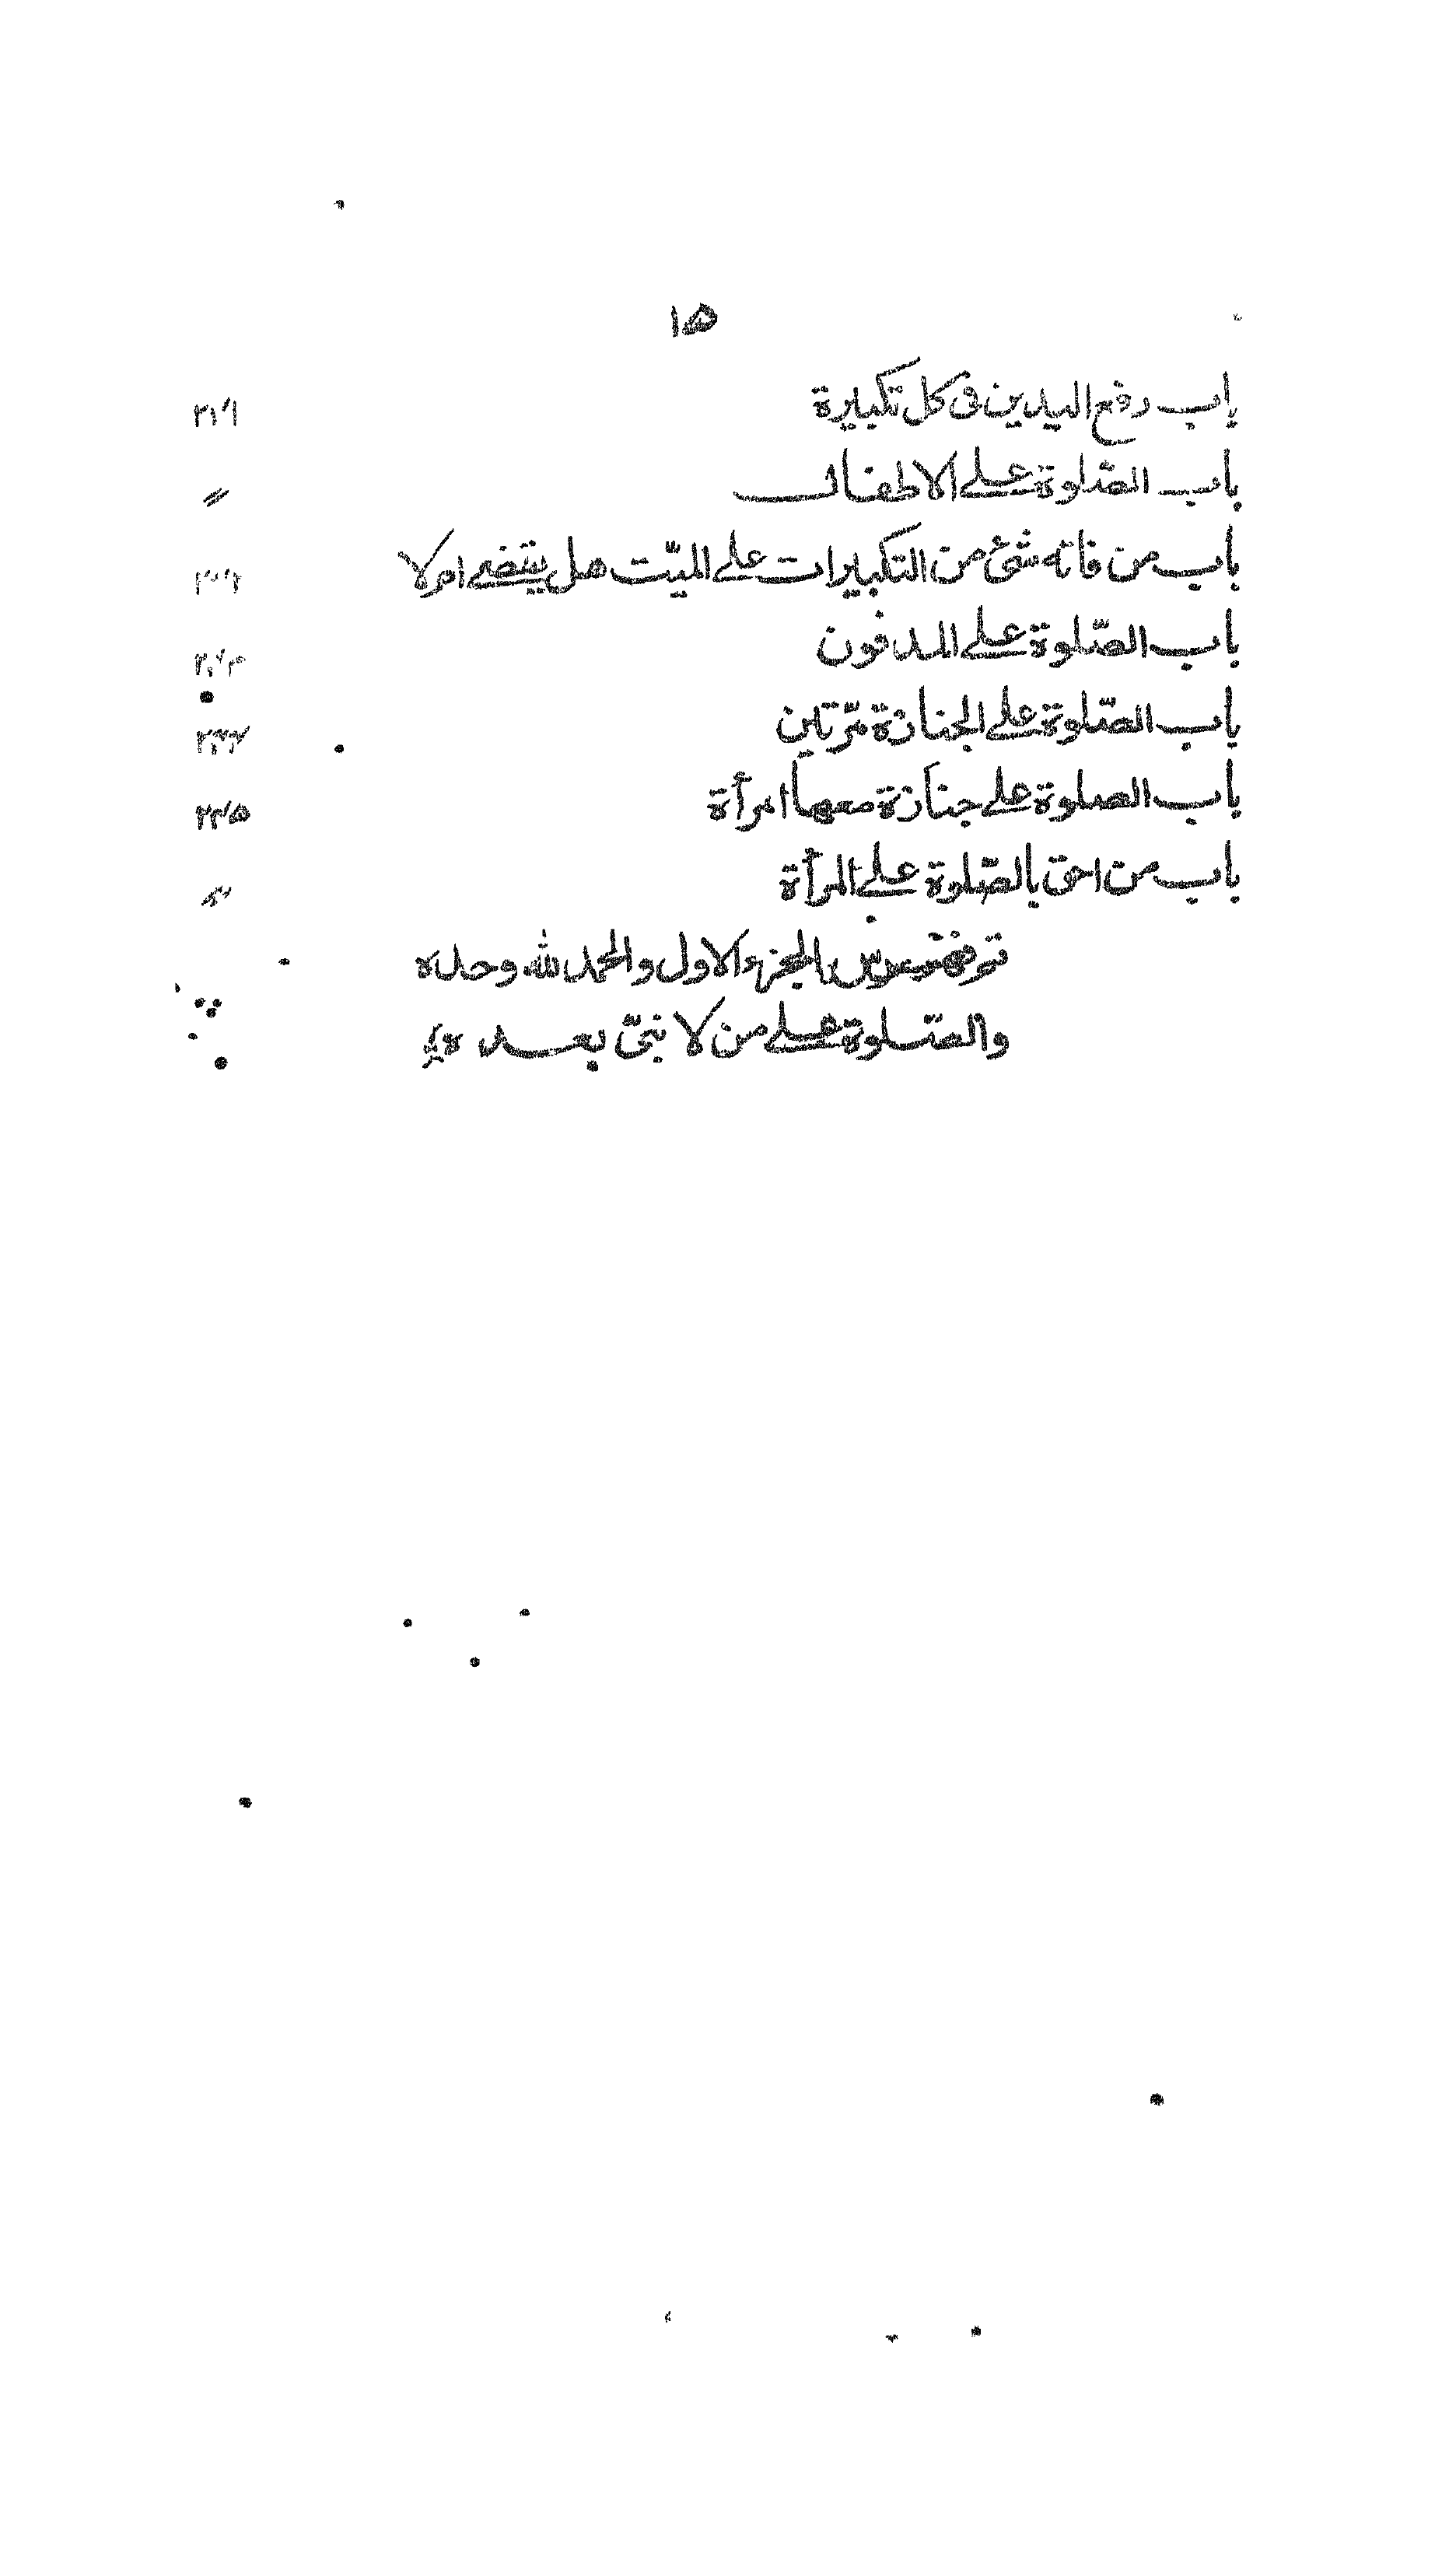 ١٥
باب رفع اليدين فى كل تكبيرة
باب الصّلوة على الاطفال ″
باب من فاته شئ من التكبيرات على الميّت هل يقضى ام لا
باب الصّلوة على المدفون
باب الصّلوة على الجنازة مرّتين
باب الصلوة على جنازة معها امرأة
باب من احق بالصّلوة على المرأة ″
تم فهرس الجزء الاول والحمد لله وحده
والصّلوة على من لا نبىّ بعده